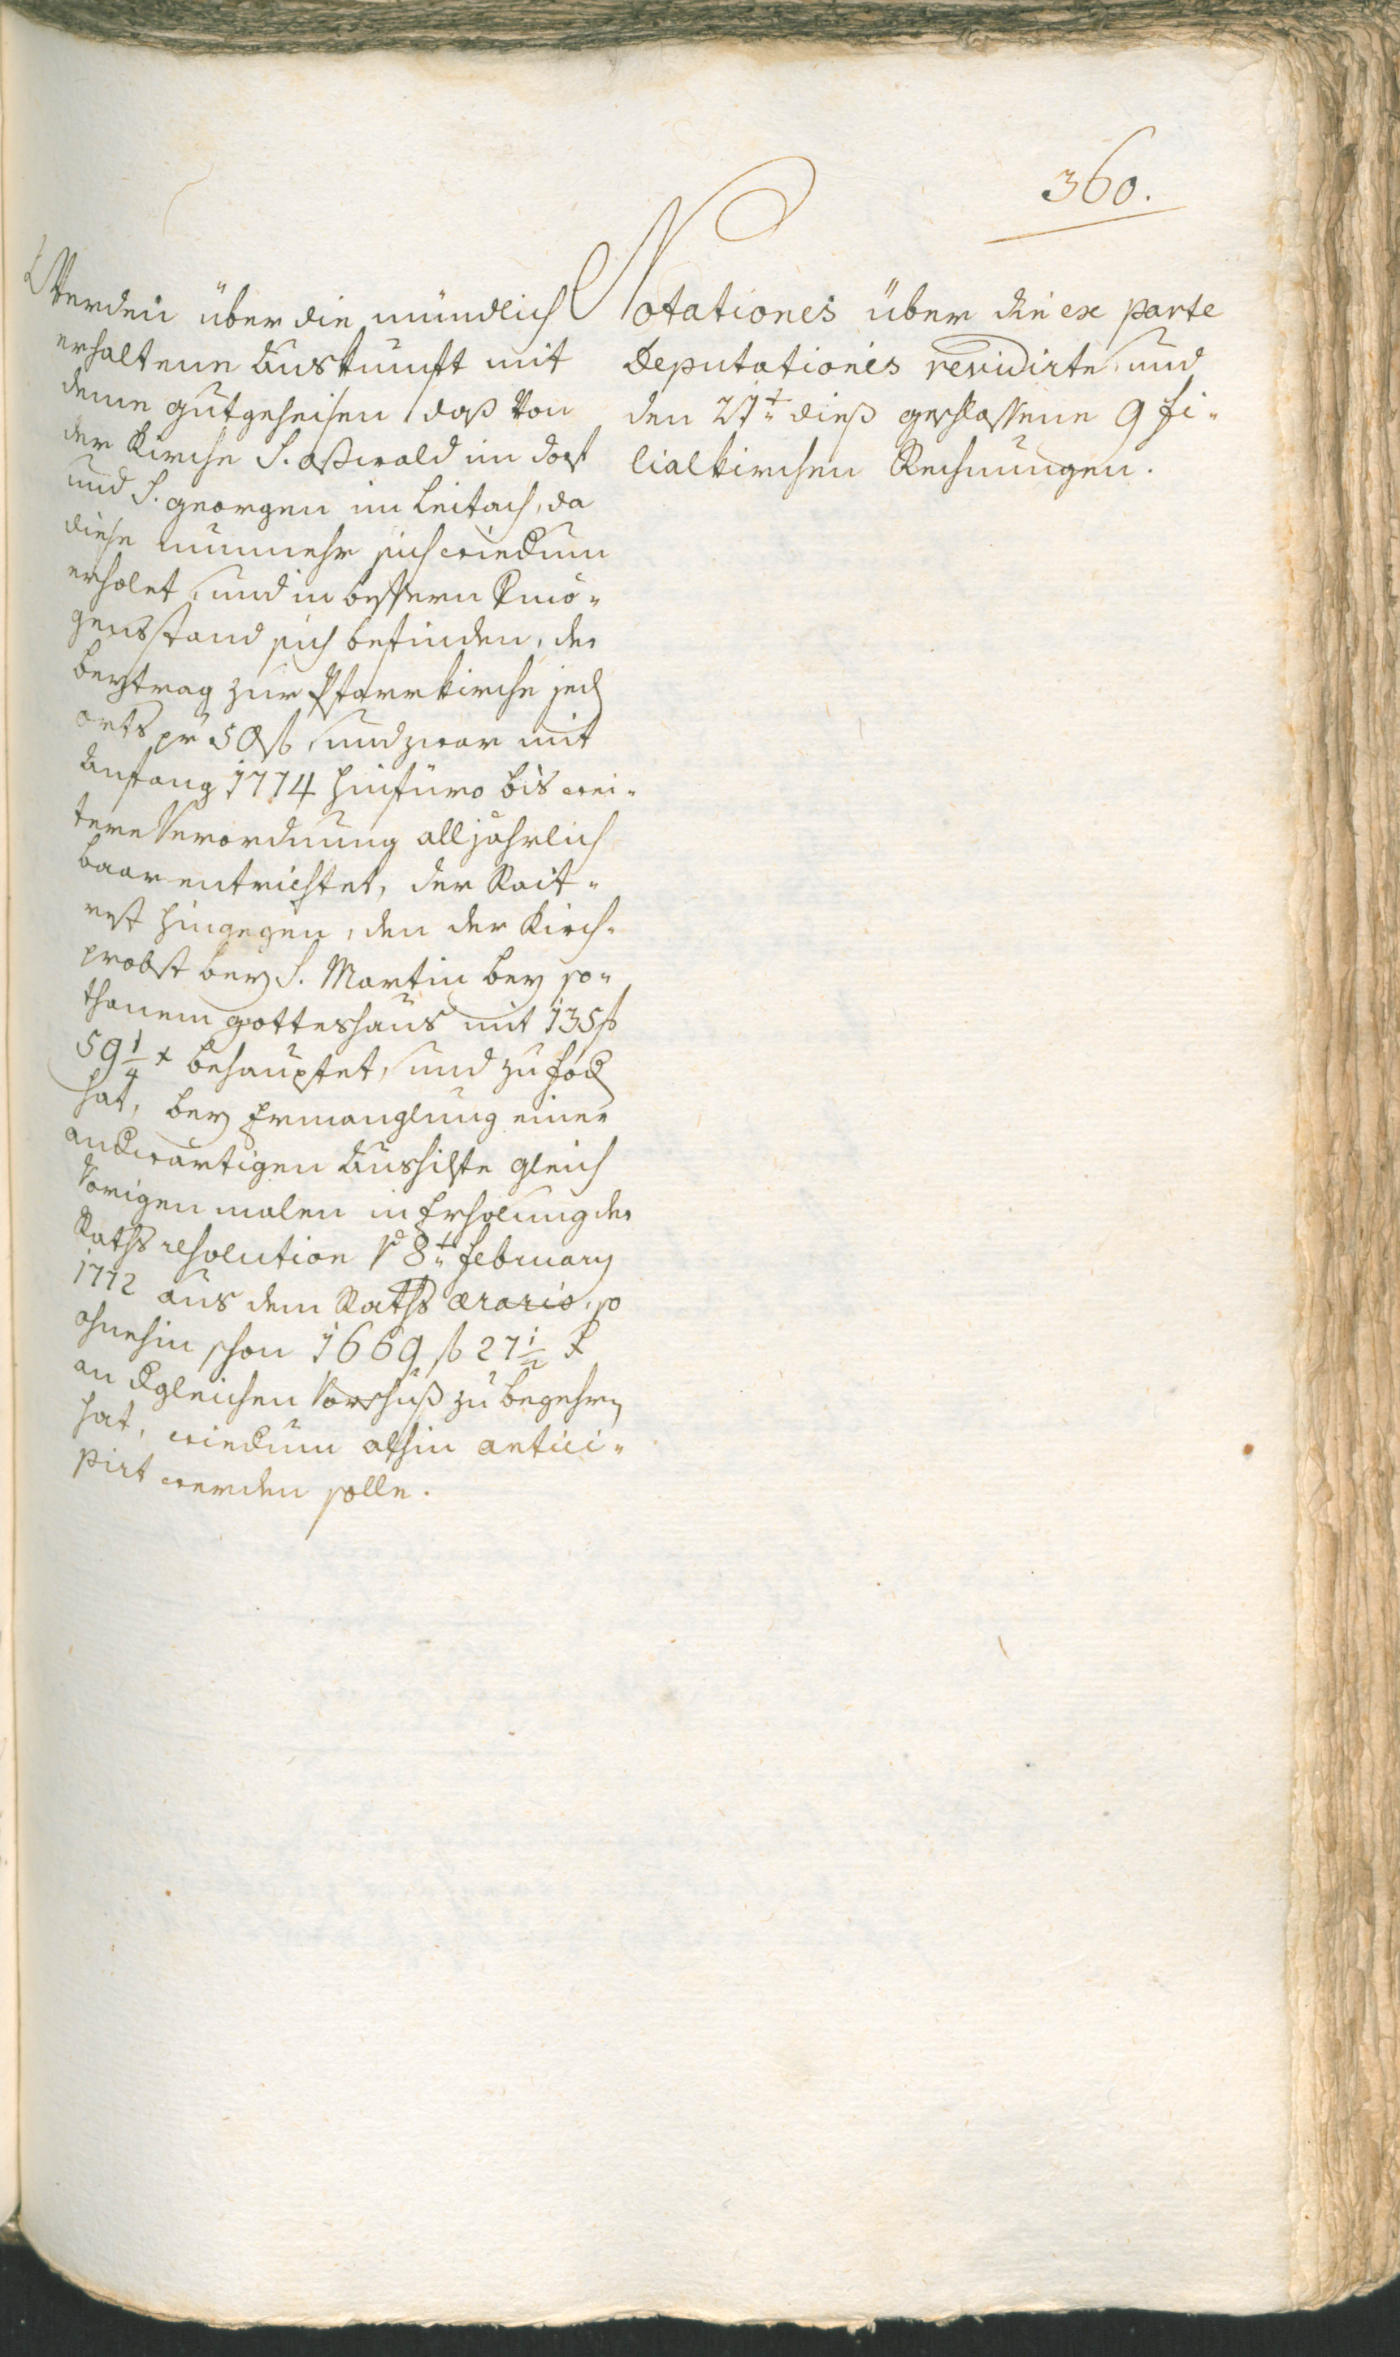 360.
Notationes über die ex parte
Deputationis revidirte und
den 27t dieß geschlossene 9 fi-
lialkirchen Rechnungen.
Werden über die mündlich
erhaltene Auskunft mit
deme gutgeheisen, daß von
der Kirche S. Oßwald im dorf
und S. georgen im Leitach, da
diese nunmehr sich wiedrum
erholet, und in bessern Vermö-
gensstand sich befinden, der
beytrag zur Pfarrkirche jed
orts pr 50 f, und zwar mit
Anfang 1774 hinfüro bis wei-
tere Verordnung alljährlich
baar entrichtet, der Rait-
rest hingegen, den der Kirch-
probst bey S. Martin bey so-
thanem gotteshaus mit 135 f
59 1/4 x behauptet, und zu fod
hat, bey Ermanglung einer
anderwärtigen Aushilfte gleich
vorigen malen in Erholung der
Raths resolution vo 8t february
1772 aus dem Raths ærario, so
ohnehin schon 1669 f 27 1/2 x
an dergleichen Vorschuß zu begehrn
hat, wiedrum althin antici-
pirt werden solle.